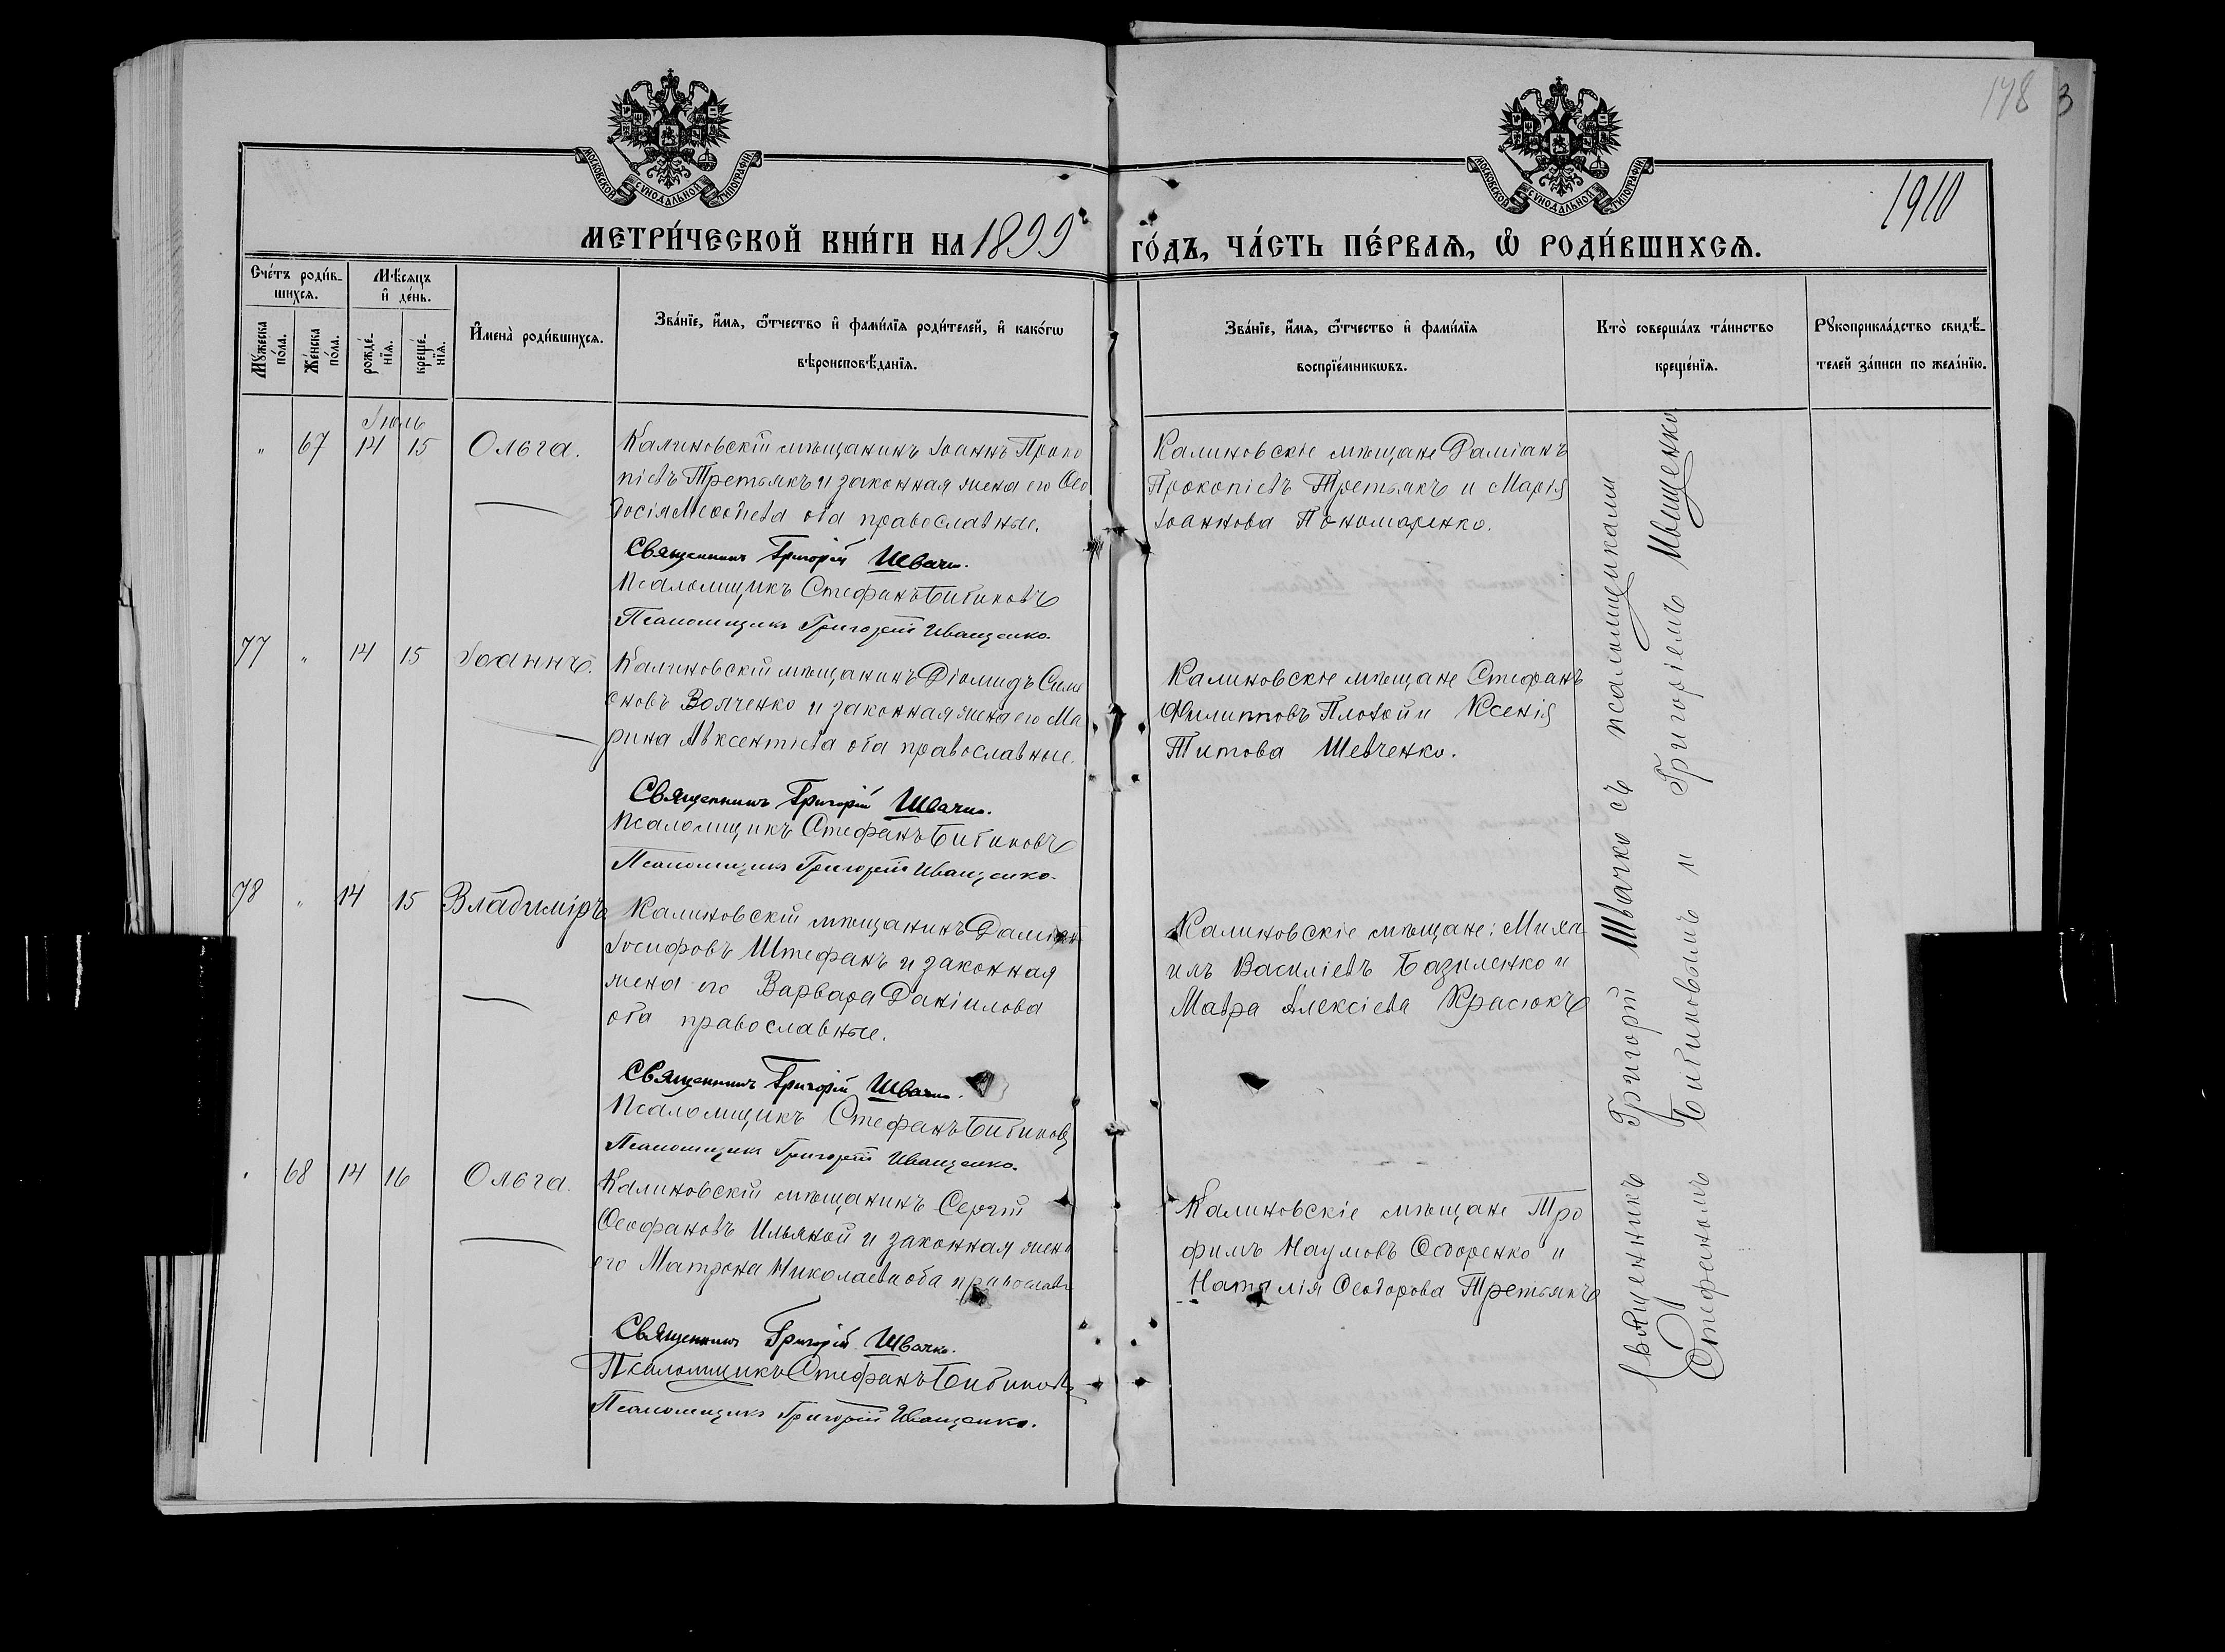 178
3
МОСКОВСКОЙ СѴНОДАЛЬНОЙ ТИПОГРАФІИ
МОСКОВСКОЙ СѴНОДАЛЬНОЙ ТИПОГРАФІИ
1910
МЕТРИ́ЧЕСКОЙ КНИ́ГИ НА 1899
ГО́ДЪ, ЧА́СТЬ ПЕ́РВАѦ, Ѡ҆ РОДИ́ВШИХСѦ.
Сче́тъ роди́в-
шихсѧ.
Мꙋ́жеска по́ла.
Же́нска по́ла.
Мѣ́сѧцъ
и҆ де́нь.
рожде́-нїѧ.
креще́-нїѧ.
И҆мена̀ роди́вшихсѧ.
Зва́нїе, и҆́мѧ, ѻ҆́тчество и҆ фамі́лїѧ роди́телей, и҆ како́гѡ
вѣроисповѣ́данїѧ.
Зва́нїе, и҆́мѧ, ѻ҆́тчество и҆ фамі́лїѧ
воспрїе́мникѡвъ.
Кто̀ соверша́лъ та́инство
креще́нїѧ.
Рꙋкоприкла́дство свидѣ́-
телей за́писи по жела́нїю.
Іюль
" 67 14 15 Ольга.
Калиновскій мѣщанинъ Іоаннъ Проко
піевъ Третьякъ и законная жена его Ѳео
досія Меѳодіева оба православные.
Священникъ Григорій Швачко.
Псаломщикъ Стефанъ Бибиковъ
Псаломщикъ Григорій Иващенко.
Калиновскіе мѣщане Даміанъ
Прокопіевъ Третьякъ и Марія
Іоаннова Пономаренко.
77 " 14 15 Іоаннъ.
Калиновскій мѣщанинъ Діомидъ Симе
оновъ Волченко и законная жена его Ма
рина Авксентіева оба православные.
Священникъ Григорій Швачко.
Псаломщикъ Стефанъ Бибиковъ
Псаломщикъ Григорій Иващенко.
Калиновскіе мѣщане Стефанъ
Филипповъ Плохой и Ксенія
Титова Шевченко.
78 " 14 15 Владиміръ
Калиновскій мѣщанинъ Даміанъ
Іосифовъ Штефанъ и законная
жена его Варвара Даніилова
оба православные.
Священникъ Григорій Швачко.
Псаломщикъ Стефанъ Бибиковъ
Псаломщикъ Григорій Иващенко.
Калиновскіе мѣщане: Миха
илъ Василіевъ Базиленко и
Мавра Алексіева Красюкъ
" 68 14 16 Ольга.
Калиновскій мѣщанинъ Сергій
Ѳеофановъ Ильяной и законная жена
его Матрона Николаева оба православ
Священникъ Григорій Швачко.
Псаломщикъ Стефанъ Бибиковъ
Псаломщикъ Григорій Иващенко.
Калиновскіе мѣщане Тро
фимъ Наумовъ Ѳедоренко и
Наталія Ѳеодорова Третьякъ
Священникъ Григорій Швачко съ псаломщиками
Стефаномъ Бибиковымъ и Григоріемъ Иващенко.